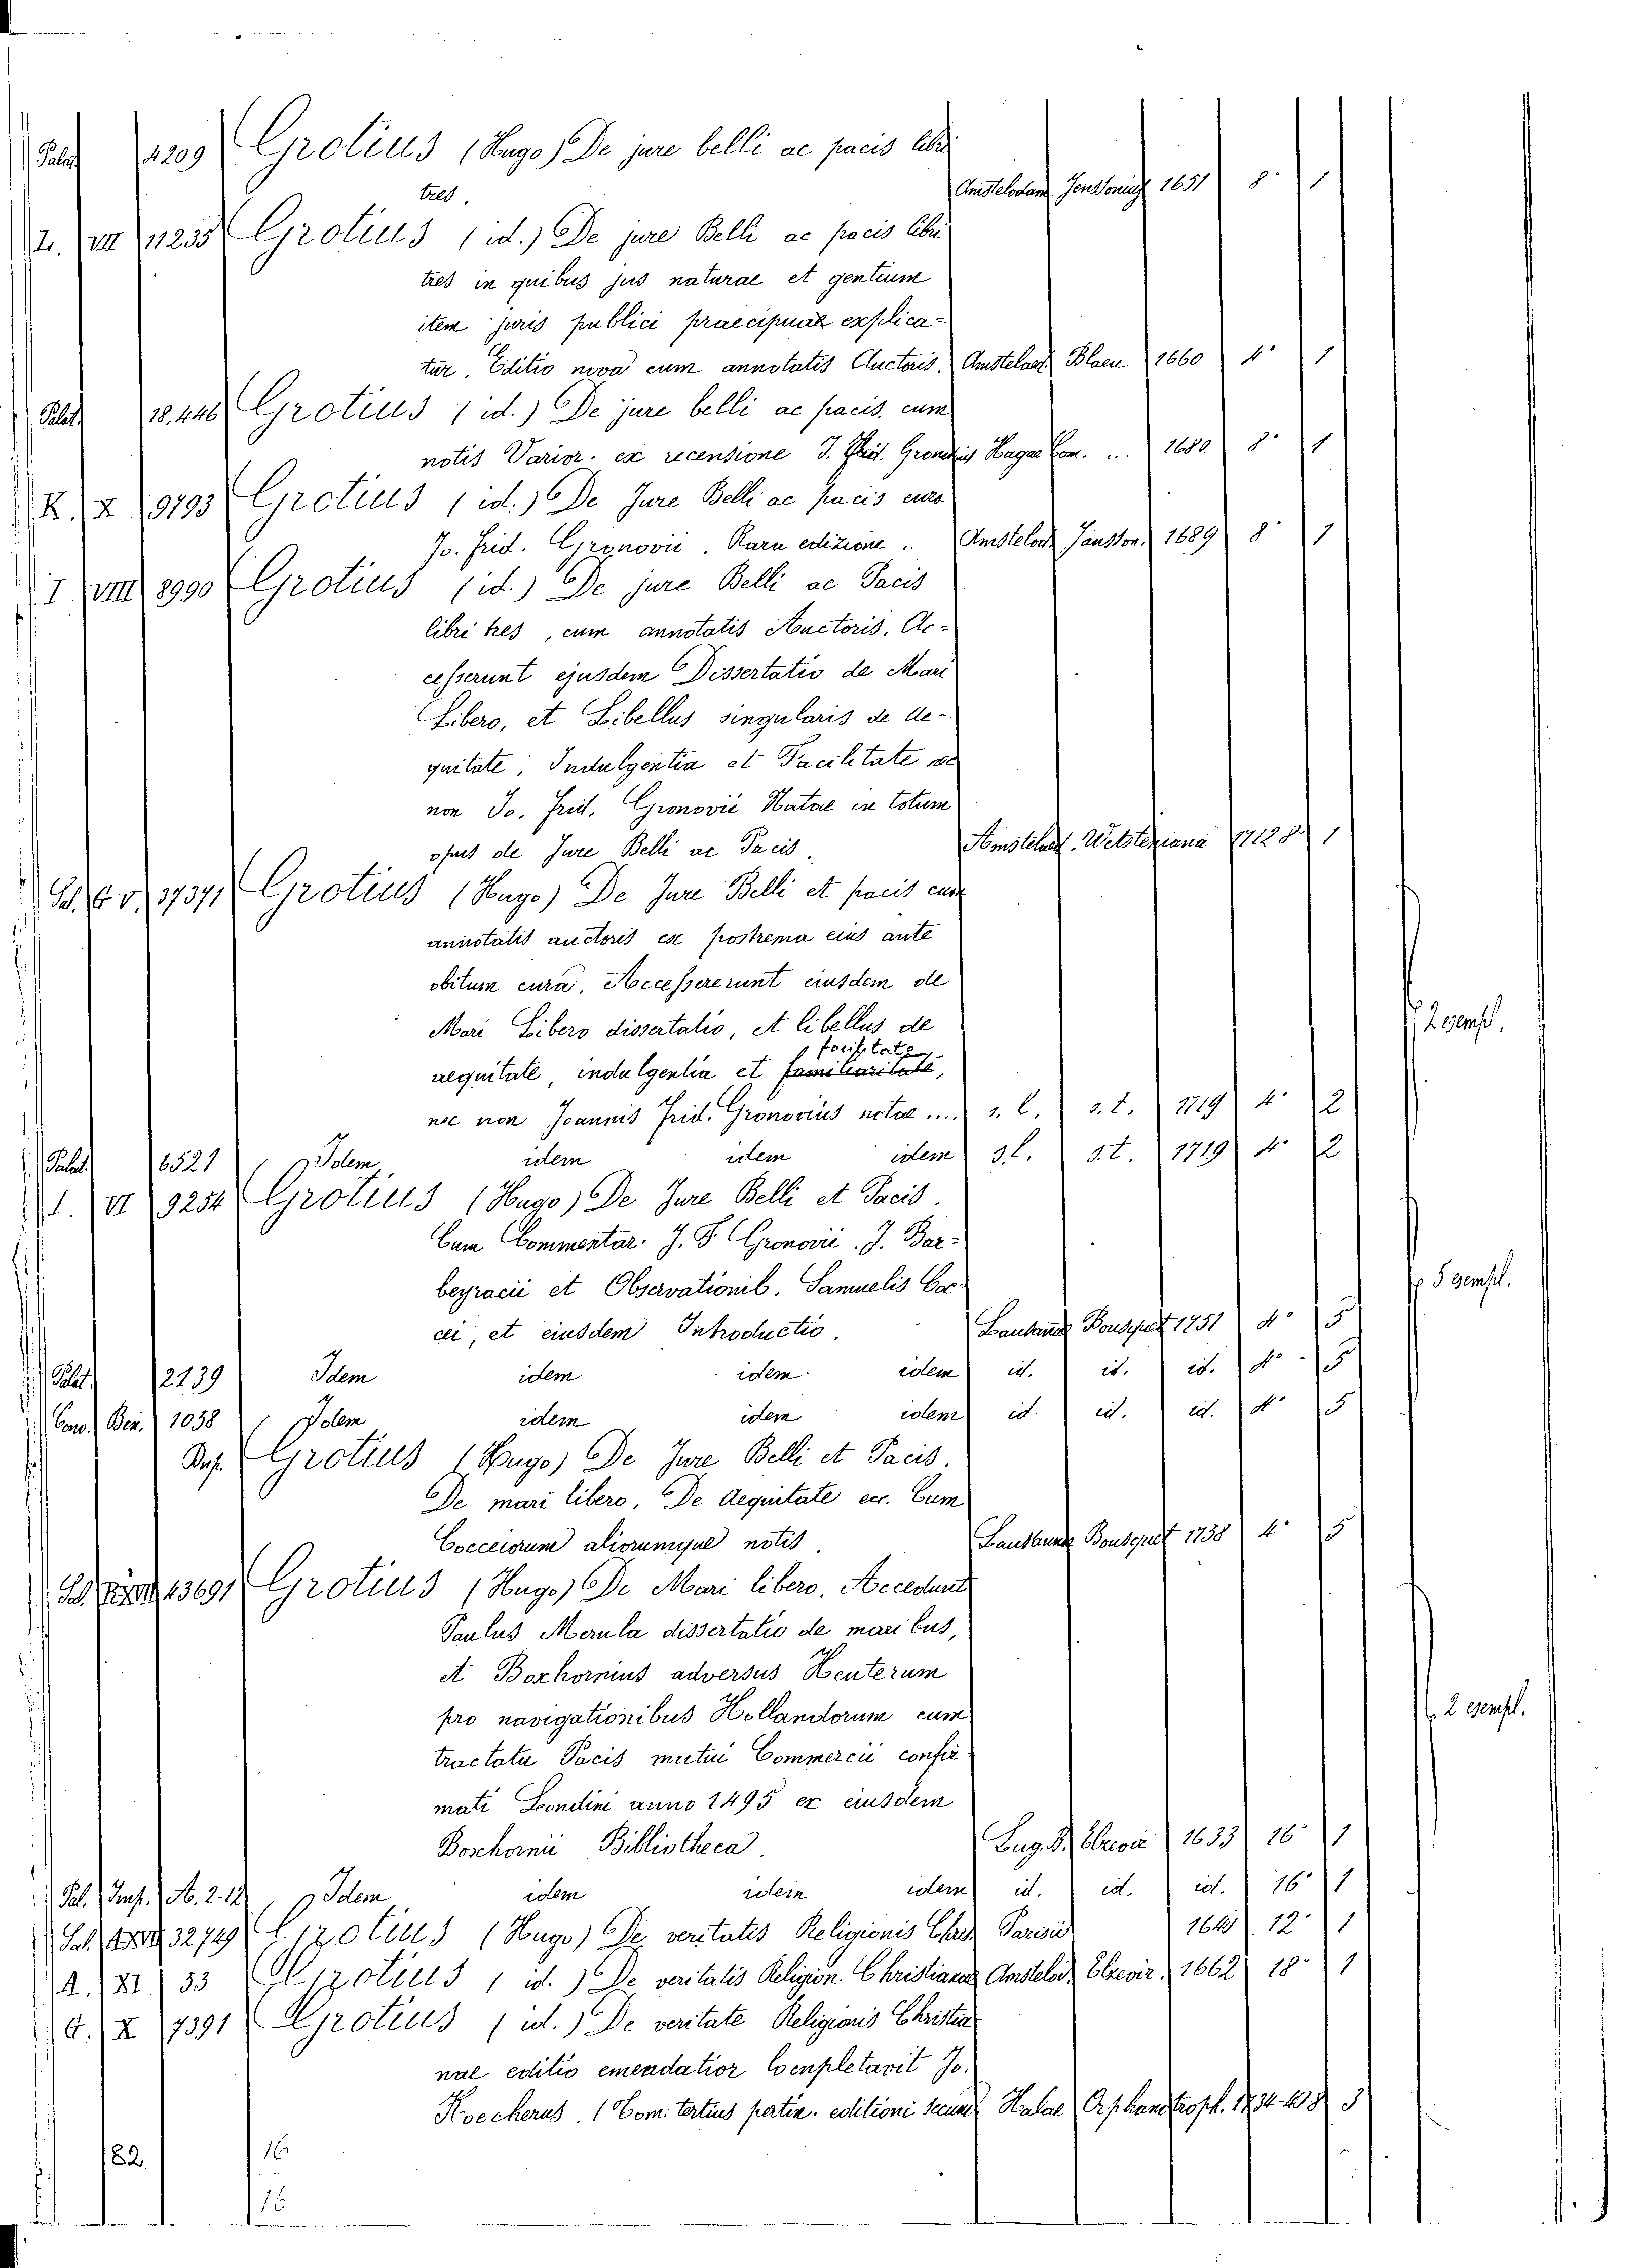 Palat 4209 Grotius (Hugo) De jure belli ac pacis libri
tres. Amstelodam Janssonius 1651 8° 1
L. VII 11235 Grotius (id.) De jure Belli ac pacis libri
tres in quibus jus naturae et gentium
item juris publici praecipuae explica-
tur. Editio nova cum annotatis Auctoris. Amstelaed. Blaeu 1660 4° 1
Palat. 18.446 Grotius (id.) De jure belli ac pacis, cum
notis Varior. ex recensione J. Frid. Gronovii Hagae Com. ... 1680 8° 1
K. X 9793 Grotius (id.) De Jure Belli ac pacis cura
Jo. Frid. Gronovii. Rara edizione .. Amstelod. Jansson. 1689 8° 1
I VIII 8990 Grotius (id.) De jure Belli ac Pacis
libri tres, cum annotatis Auctoris. Ac-
cesserunt ejusdem Dissertatio de Mari
Libero, et Libellus singularis de Ae-
quitate, Indulgentia et Facilitate
non Jo. Frid. Gronovii Notae in totum
opus de Jure Belli ac Pacis. Amstelaed. Wetsteniana 1712 8° 1
Sal. G V. 17371 Grotius (Hugo) De Jure Belli et pacis cum
annotatis auctoris ex postrema eius ante
obitum cura. Accessererunt eiusdem de
Mari Libero dissertatio, et libellus de
facilitate
aequitate, indulgentia et familiaritate,
2 esempl.
nec non Joannis Frid. Gronovius notae .... s. l. s. t. 1719 4° 2
Palat. 6521 Idem idem idem idem s. l. s. t. 1719 4° 2
I. VI 9254 Grotius (Hugo) De Jure Belli et Pacis.
Cum Commentar. J. F. Gronovii. J. Bar-
beyracii et Observationib. Samuelis Coc-
5 esempl.
cei, et eiusdem Introductio. Lausannae Bousquet 1751 4° 5
Palat. 2139 Idem idem idem idem id. id. id. 4° 5
Cons. Ben. 1058 Idem idem idem idem id. id. id. 4° 5
Grotius (Hugo) De Jure Belli et Pacis.
De mari libero. De Aequitate ecc. Cum
Cocceiorum aliorumque notis. Lausannae Bousquet 1758 4° 5
13691 Grotius (Hugo) De Mari libero. Accedunt
Paulus Merula dissertatio de maribus,
et Boxhornius adversus Heuterum
pro navigationibus Hollandorum cum
2 esempl.
tractatu Pacis mutui Commercii confir-
mati Londini anno 1495 ex eiusdem
Boschornii Bibliotheca. Lug. B. Elzevir 1633 16° 1
Pal. Imp. A. 2. 12 Idem idem idem idem id. id. id. 16° 1
Sal. 32749 Grotius (Hugo) De veritatis Religionis Chris Parisiis 12° 1
A. XI. 33 Grotius (id.) De veritatis Religion. Christianae Amstelod. Elzevir 1662 18° 1
G. X 7391 Grotius (id.) De veritate Religionis Christia-
nae editio emendatior Completavit Jo.
Koecherus. (Tom. tertius pertin. editioni secund Halae Orphanotroph. 1734 8° 3
82 16
15